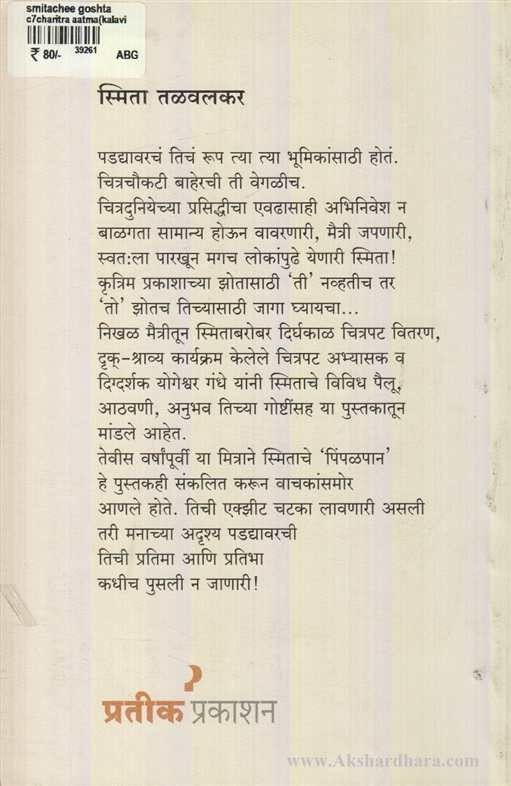 smitachee goshta
c7charitra aatma(kalavi
₹ 80/- 39261 ABG
स्मिता तळवलकर
पडद्यावरचं तिचं रूप त्या त्या भूमिकांसाठी होतं.
चित्रचौकटी बाहेरची ती वेगळीच.
चित्रदुनियेच्या प्रसिद्धीचा एवढासाही अभिनिवेश न
बाळगता सामान्य होऊन वावरणारी, मैत्री जपणारी,
स्वत:ला पारखून मगच लोकांपुढे येणारी स्मिता!
कृत्रिम प्रकाशाच्या झोतासाठी ‘ती’ नव्हतीच तर
‘तो’ झोतच तिच्यासाठी जागा घ्यायचा...
निखळ मैत्रीतून स्मिताबरोबर दिर्घकाळ चित्रपट वितरण,
दृक्-श्राव्य कार्यक्रम केलेले चित्रपट अभ्यासक व
दिग्दर्शक योगेश्वर गंधे यांनी स्मिताचे विविध पैलू,
आठवणी, अनुभव तिच्या गोष्टींसह या पुस्तकातून
मांडले आहेत.
तेवीस वर्षांपूर्वी या मित्राने स्मिताचे ‘पिंपळपान’
हे पुस्तकही संकलित करून वाचकांसमोर
आणले होते. तिची एक्झीट चटका लावणारी असली
तरी मनाच्या अदृश्य पडद्यावरची
तिची प्रतिमा आणि प्रतिभा
कधीच पुसली न जाणारी!
प्रतीक प्रकाशन
www.Akshardhara.com